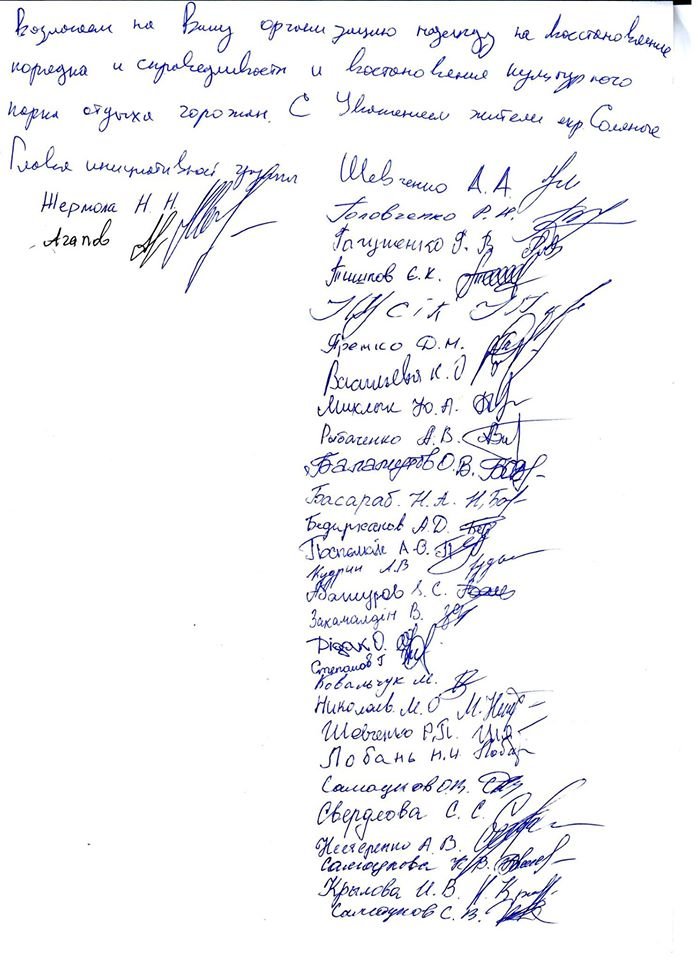 возлагаем на Вашу организацию надежду на восстановление
порядка и справедливости и востоновление культурного
парка отдыха горожан. С Уважением жители мкр Солнечне
Глава инициативной группы
Жермола Н. Н.
Агапов
Шевченко А. А.
Головченко Р. Н.
Гагушенко Г. В
Тишков Є. К.
Яремко Д. М.
Васильева К. О
Миклык Ю. А.
Рыбаченко А. В.
Баламутов О. В.
Басараб. Н. А.
Бедирханов А. Д.
А. О.
Кудрин А. В
Абашуров С.
Закамалдін В.
Дідак О.
Степанов Г
Ковальчук М.
Николаев. М. О
Шевченко Р. П.
Лобань Н. И
Самоцков О. В.
Свердлова С. С.
Нестеренко А. В.
Самоцкова К. В.
Крылова И. В
Самоцков С. В.